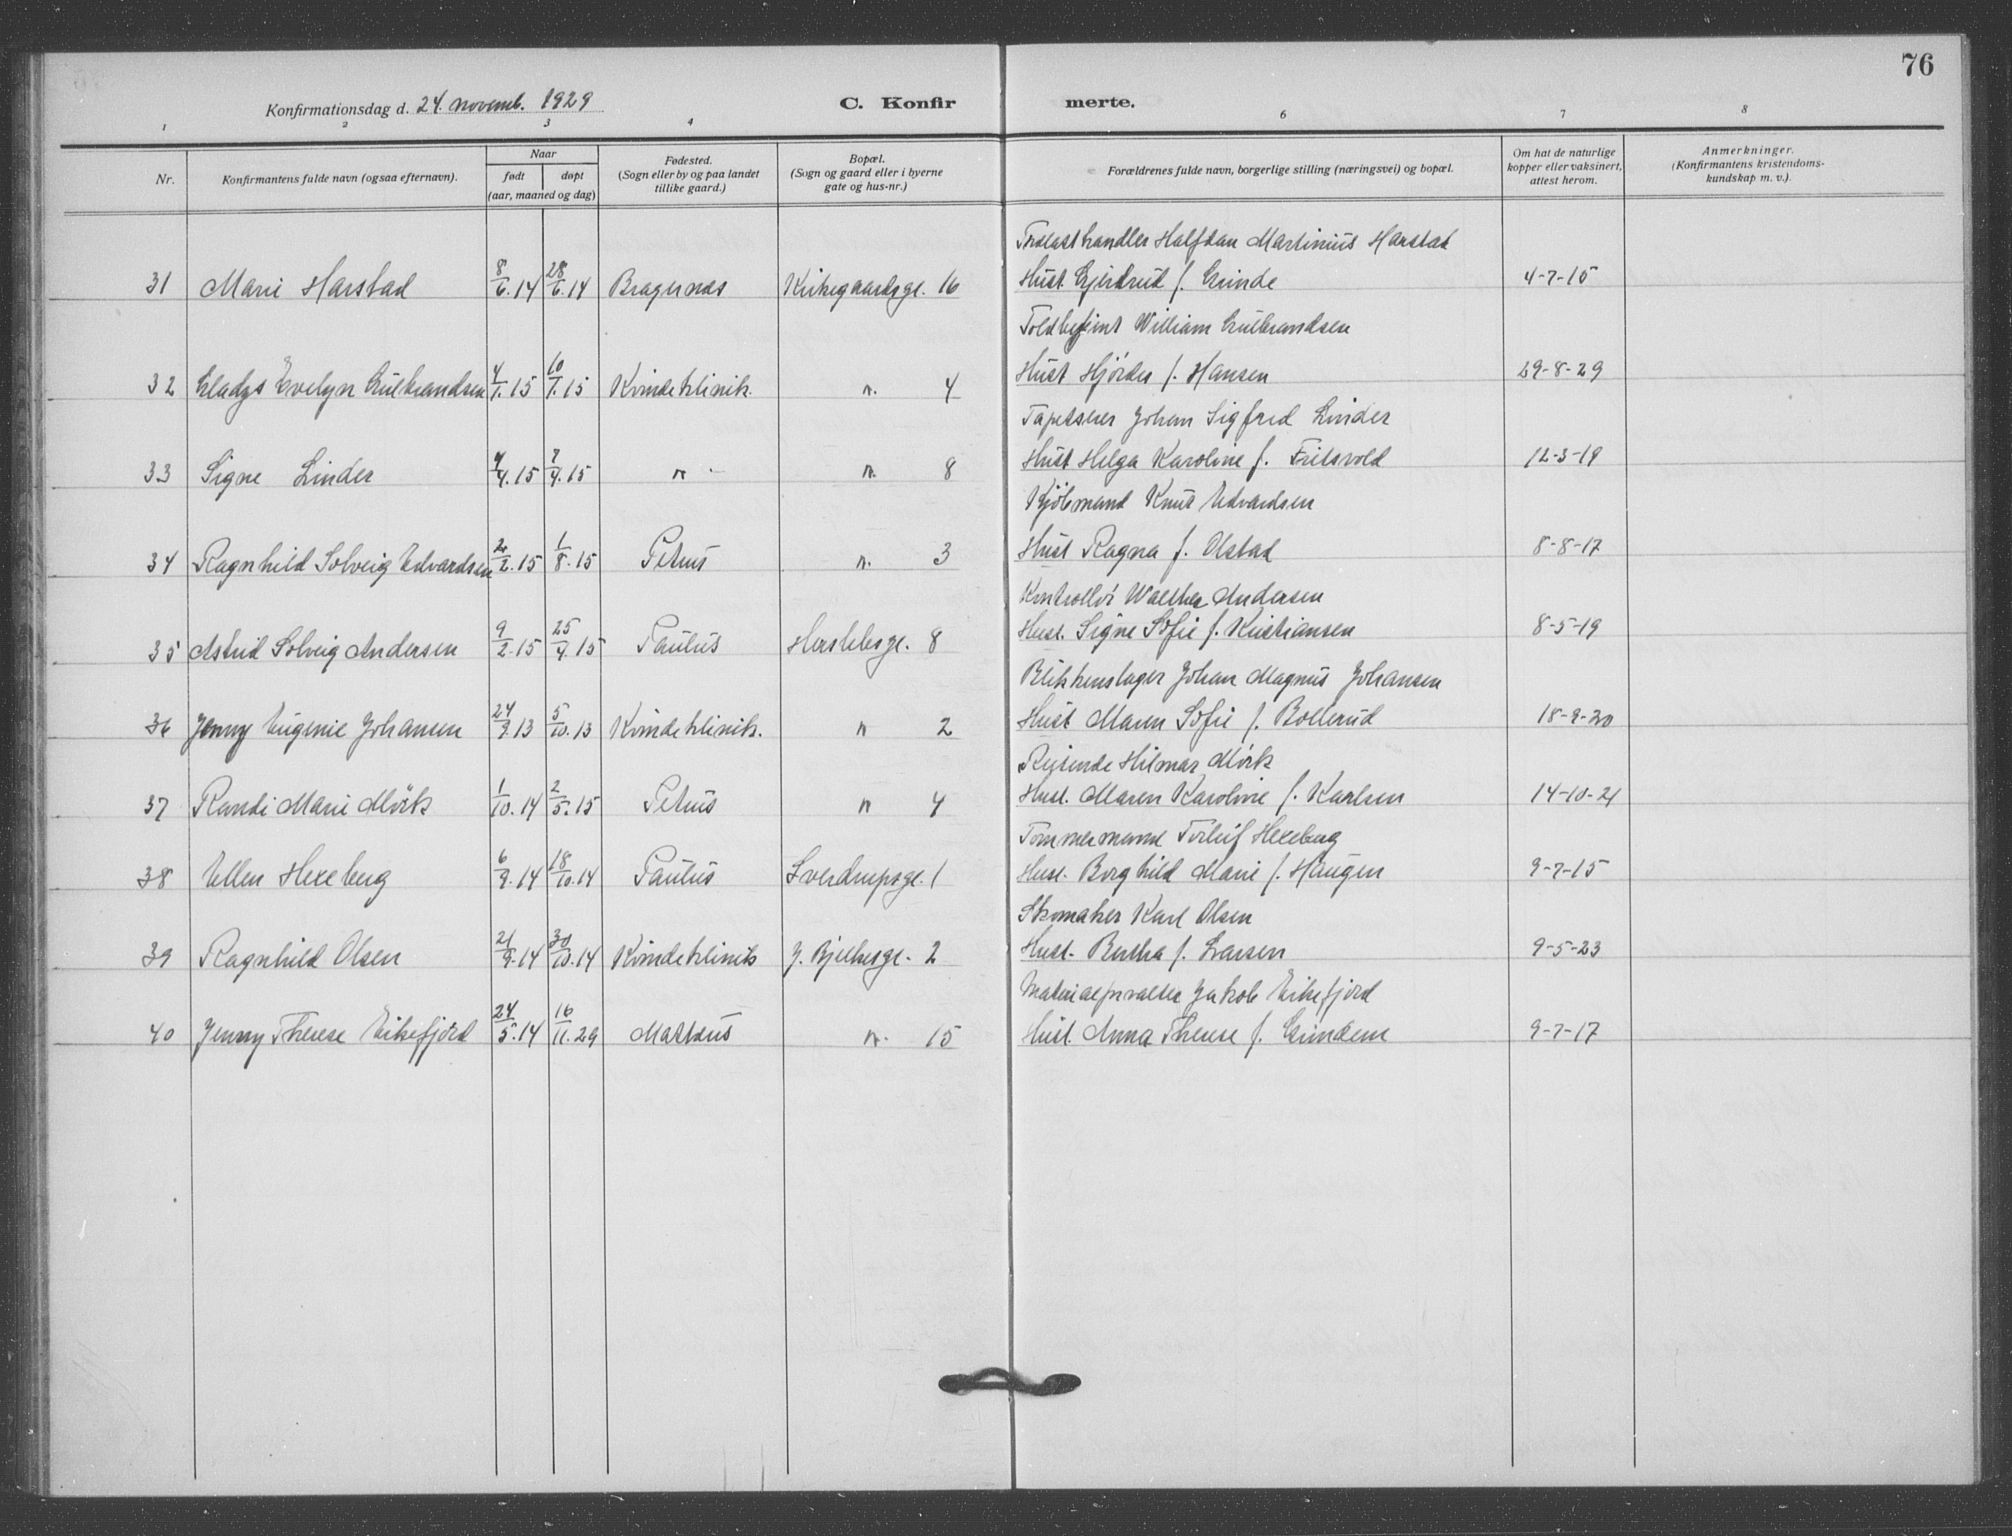 76
Konfirmationsdag d. 24. novemb. 1929
C. Konfir merte.
1 2 3 4 6 7 8
Nr.
Konfirmantens fulde navn (ogsaa efternavn).
Naar
født døpt
(aar, maaned og dag)
Fødested.
(Sogn eller by og paa landet
tillike gaard.)
Bopæl.
(Sogn og gaard eller i byerne
gate og hus-nr.)
Forældrenes fulde navn, borgerlige stilling (næringsvei) og bopæl.
Om hat de naturlige
kopper eller vaksinert,
attest herom.
Anmerkninger.
(Konfirmantens kristendoms-
kundskap m. v.).
Trælasthandler Halfdan Martinius Harstad
31 Marie Harstad 8/6.14 28/6.14 Bragernæs Kirkegaardsge. 16 Hust. Gjertrud f. Grinde 4-7-15
William Gulbrandsen
32 Gladys Evelyn Gulbrandsen 4/1.15 10/1.15 Kvindeklinik. n. 4 Hust Hjørdis f. Hansen 29-8-29
Tapetserer Johan Sigfred Linder
33 Signe Linder 4/4.15 7/4.15 n - n. 8 Hust Helga Karoline f. Fritsvold 12-3-19
Kjøbmand Knut Edvardsen
34 Ragnhild Solveig Edvardsen 2/2.15 1/8.15 Petrus n. 3 Hust Ragna f. Olstad 8-8-17
Kontrollør Walther Andersen
35 Astrid Solveig Andersen 9/2.15 25/4.15 Paulus Herslebsge. 8 Hust. Signe Sofie f. Kristiansen 8-5-19
Blikkenslager Johan Magnus Johansen
36 Jenny Eugenie Johansen 24/9.13 5/10.13 Kvindeklinik. n 2 Hust Maren Sofie f. Bollerud 18-9-20
Reisende Hilmar Mørk
37 Randi Marie Mørk 1/10.14 2/5.15 Petrus n 4 Hust. Maren Karoline f. Karlsen 14-10-21
Tømmermand Torleif Hexeberg
38 Ellen Hexeberg 6/9.14 18/10.14 Paulus Sverdrupsge. 1 Hust. Borghild Marie f. Haugen 9-7-15
Skomaker Karl Olsen
39 Ragnhild Olsen 21/9.14 30/10.14 Kvindeklinik J. Bjelkesge. 2 Hust. Bertha f. Larsen 9-5-23
Materialforvalter Jakob Eikefjord
40 Jenny Therese Eikefjord 24/5.14 16/11.29 Mattæus n. 15 Hust. Anna Therese f. Grindem 9-7-17